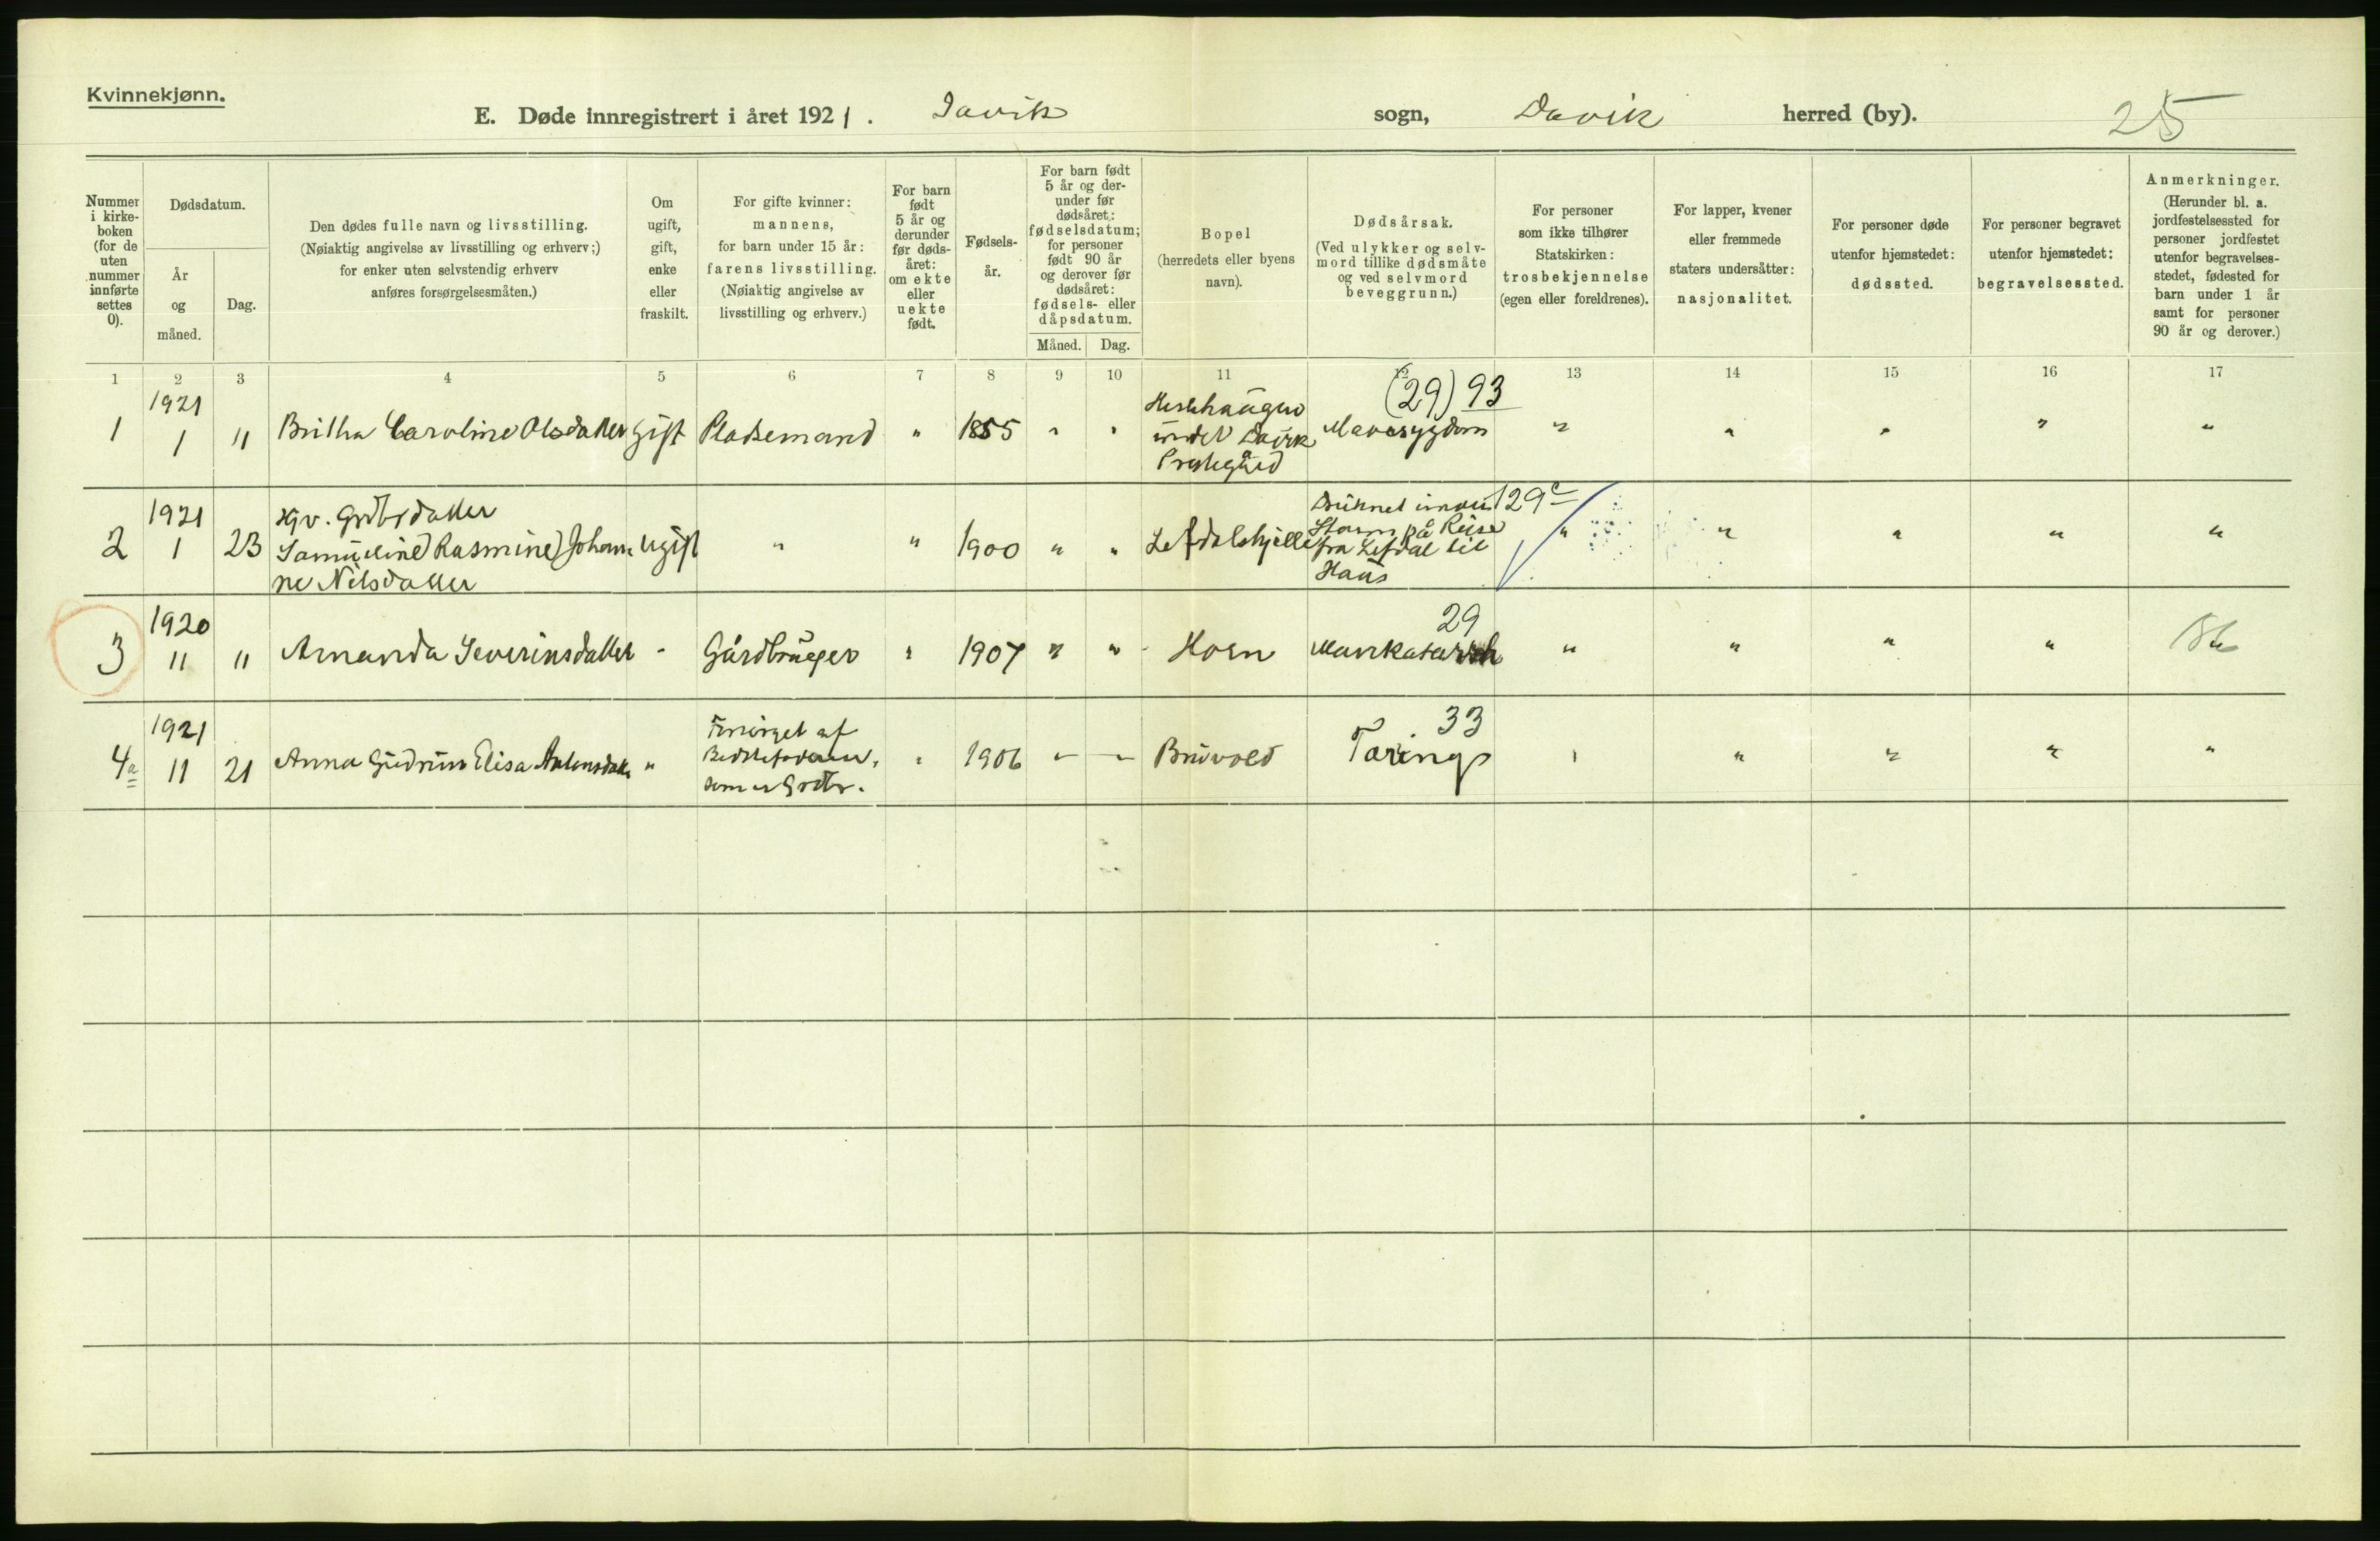 Kvinnekjønn.
E. Døde innregistrert i året 1921. Davik sogn, Davik herred (by). 25
Nummer i kirke-boken (for de uten nummer innførte settes 0).
Dødsdatum.
År og måned.
Dag.
Den dødes fulle navn og livsstilling.
(Nøiaktig angivelse av livsstilling og erhverv;)
for enker uten selvstendig erhverv
anføres forsørgelsesmåten.)
Om ugift, gift, enke eller fraskilt.
For gifte kvinner:
mannens,
for barn under 15 år:
farens livsstilling.
(Nøiaktig angivelse av
livsstilling og erhverv.)
For barn født 5 år og derunder før døds-året: om ekte eller uekte født.
Fødsels-år.
For barn født 5 år og der-under før dødsåret: fødselsdatum; for personer født 90 år og derover før dødsåret: fødsels- eller dåpsdatum.
Måned. Dag.
Bopel
(herredets eller byens
navn).
Dødsårsak.
(Ved ulykker og selv-
mord tillike dødsmåte
og ved selvmord
beveggrunn.)
For personer
som ikke tilhører
Statskirken:
trosbekjennelse
(egen eller foreldrenes).
For lapper, kvener
eller fremmede
staters undersåtter:
nasjonalitet.
For personer døde
utenfor hjemstedet:
dødssted.
For personer begravet
utenfor hjemstedet:
begravelsessted.
Anmerkninger.
(Herunder bl. a.
jordfestelsessted for
personer jordfestet
utenfor begravelses-
stedet, fødested for
barn under 1 år
samt for personer
90 år og derover.)
1 2 3 4 5 6 7 8 9 10 11 12 13 14 15 16 17
1 1921 1 11 Britha Caroline Olsdatter gift Pladsemand " 1855 " " under Davik Prestegård (29) 93 Mavesygdom " " " " "
2 1921 1 23 Grdbrdatter
Samueline Rasmine Johan
ne Nilsdatter ugift " " 1900 " " Druknet under 129c
Storm på Reise
fra Lefdal til
Haus " " " " "
3 1920 11 11 Amanda Severinsdatter - Gårdbruger " 1907 " " Horn 29 Mavekatarrh " " " "
4a 1921 11 21 Anna Gudrun Elisa Antonsdatter " Forsørget af
Bedsteforældrene,
som er Grdbr. " 1906 " " Bruvold 33 Tæring " " " " "